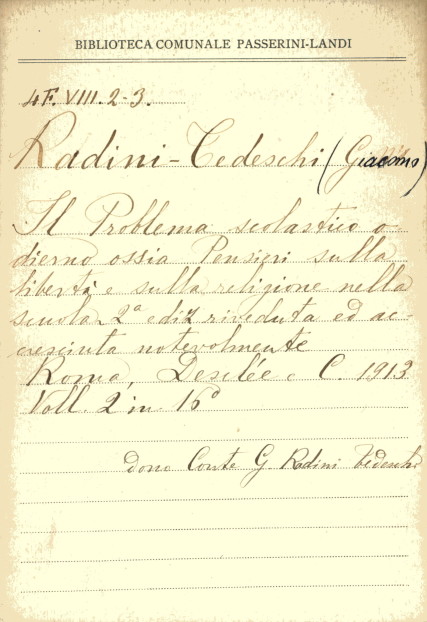 BIBLIOTECA COMUNALE PASSERINI-LANDI
4F. VIII. 2-3.
Radini-Tedeschi (Giacomo)
Il Problema scolastico o-
dierno ossia Pensieri sulla
libertà e sulla religione nella
scuola 2ª ediz riveduta ed ac-
cresciuta notevolmente
Roma, Desclée e C. 1913
Voll. 2 in 16º
dono Conte G. Radini Tedeschi